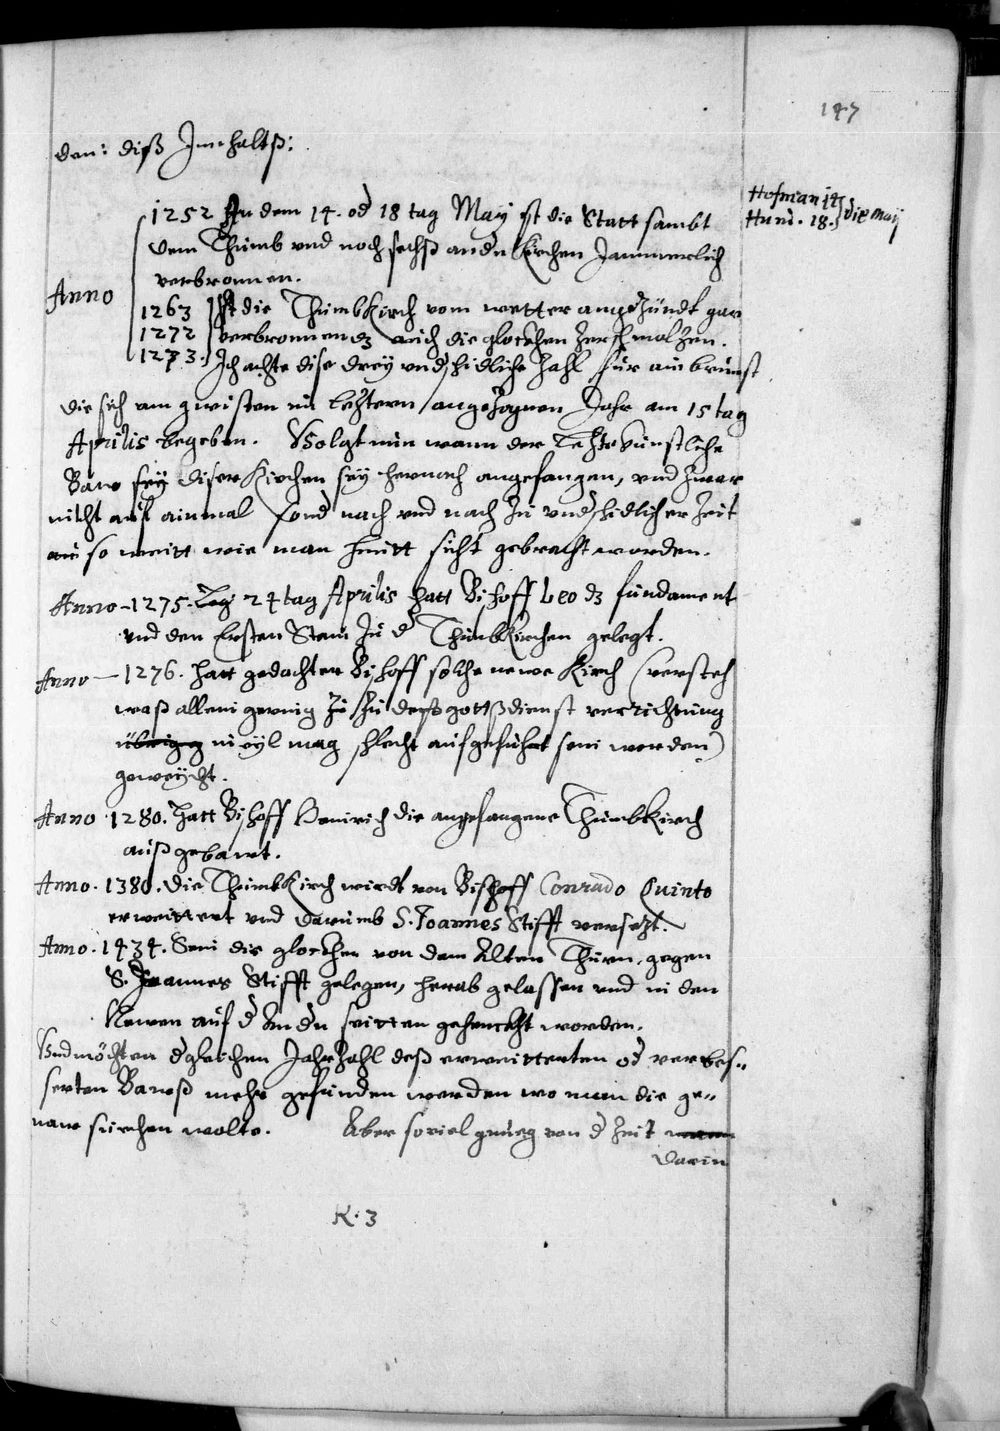 147
den: diß Innhaltß:
Hofman 14
Hund. 18. die Maij
1252 An dem 14. od 18 tag May ist die Statt sambt
dem Thumb vnd noch sechß andn Kirchen Jammerlich
verbronnen.
Anno
1263 Ist die ThumbKirch vom wetter angezündt gar
1272 verbronnen dz auch die glockhen zerschmolzen.
1273. Ich achte dise drey vndschidliche Zahl für ain brunst
die sich am gwisten im letztern angezognen Jahr am 15 tag
Aprilis begeben. Volgt nun wann der letzte kunstliche
Baw sey diser Kirchen sey hernach angefangen, vnd zwar
nicht auf ainmal sond nach vnd nach zu vndschidlicher Zeit
so weitt wie man heutt sicht gebracht worden.
Anno - 1275. Tag 24 tag Aprilis hatt Bischoff Leo dz fundament
vnd den Ersten Stain zu d ThumbKirchen gelegt.
Anno - 1276. hatt gedachter Bischoff solche newe Kirch (versteh
waß allein gewnig zu deß gottßdienst verrichtung
übrigg in eyl mag schlecht aufgeführt sein worden)
geweycht.
Anno 1280. hatt Bischoff Heinrich die angefangene ThumbKirch
außgebawt.
Anno. 1380. Die ThumbKirch wirdt von Bischoff Conrado Quinto
erweittert vnd darumb S. Joannes Stifft versetzt.
Anno. 1434. Sein die glockhen von dem Alten Thurn, gegen
S. Joannes Stifft gelegen, herab gelassen vnd in den
Newen auf d Andn seitten gehenckht worden.
Vnd möchten dgleichen JahrZahl deß erweitterten od verbes„
serten Bawß mehr gefunden werden wo man die ge„
naw suechen wolte. Aber soviel gnueg von d Zeit
darin
K. 3